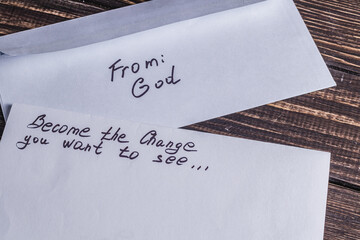 From:
God
Become the Change
you want to see...